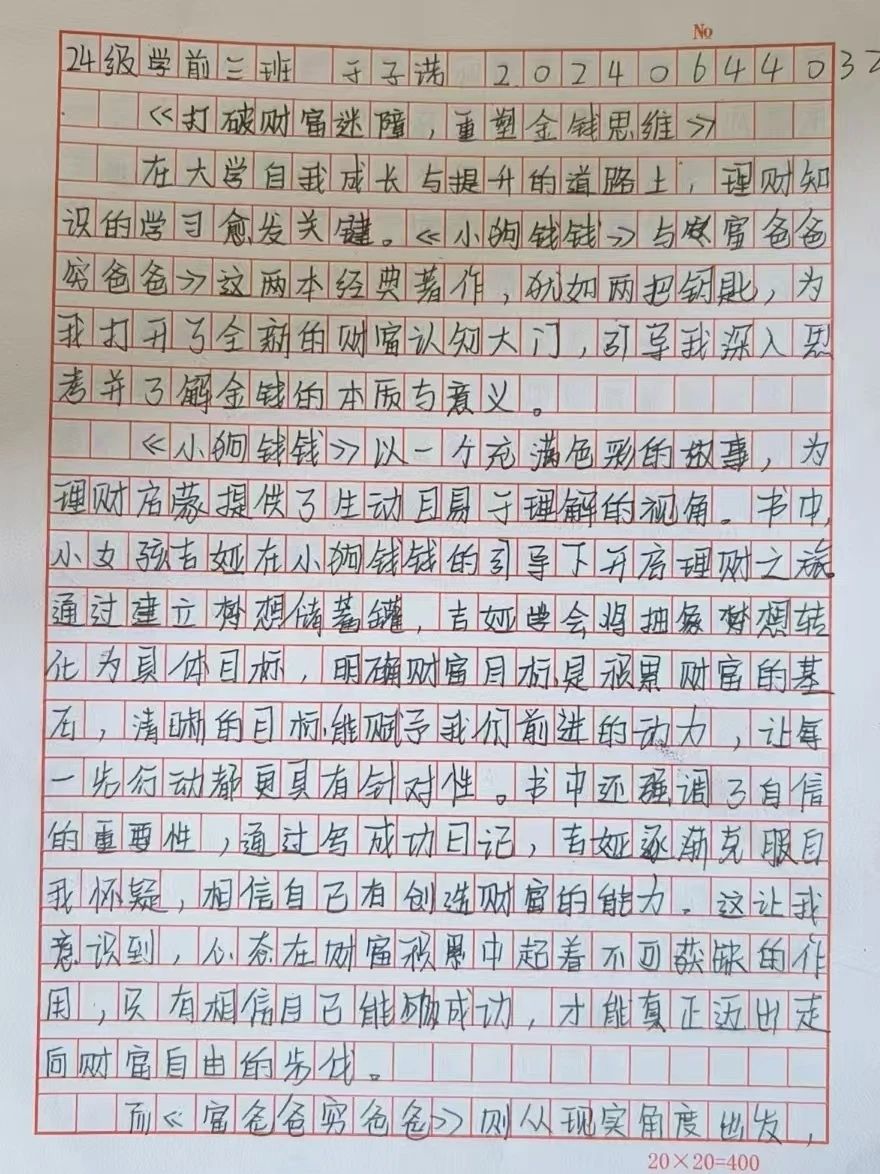 No
24级学前三班 于子诺 20240644032
《打破财富迷障,重塑金钱思维》
在大学自我成长与提升的道路上,理财知
识的学习愈发关键。《小狗钱钱》与富爸爸
穷爸爸》这两本经典著作,犹如两把钥匙,为
我打开了全新的财富认知大门,引导我深入思
考并了解金钱的本质与意义。
《小狗钱钱》以一个充满色彩的故事,为
理财启蒙提供了生动且易于理解的视角。书中,
小女孩吉娅在小狗钱钱的引导下开启理财之旅。
通过建立梦想储蓄罐,吉娅学会将抽象梦想转
化为具体目标,明确财富目标是积累财富的基
石,清晰的目标能赋予我们前进的动力,让每
一步行动都更具有针对性。书中还强调了自信
的重要性,通过写成功日记,吉娅逐渐克服自
我怀疑,相信自己有创造财富的能力。这让我
意识到,心态在财富积累中起着不可获缺的作
用,只有相信自己能够成功,才能真正迈出走
向财富自由的步伐。
而《富爸爸穷爸爸》则从现实角度出发,
20×20=400